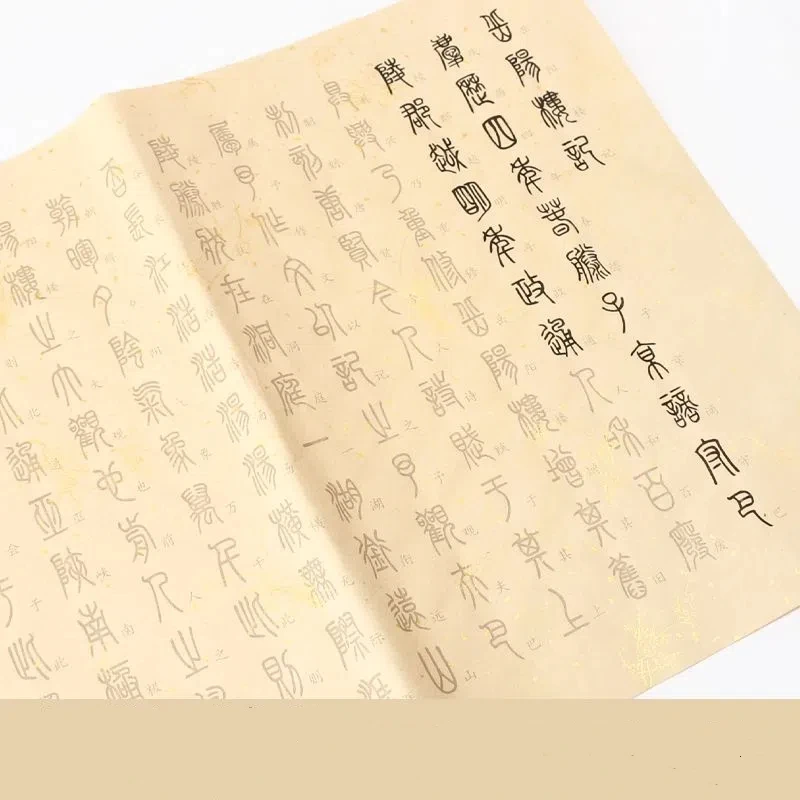 岳陽樓記
慶曆四年春滕子京謫守巴
陵郡越明年政通人和百廢
具興乃重修岳陽樓增其舊
制刻唐賢今人詩賦于其上
屬予作文以記之予觀夫巴
陵勝狀在洞庭一湖銜遠山
吞長江浩浩湯湯橫無際涯
朝暉夕陰氣象萬千此則
陽樓之大觀也前人之
北通巫峽南極
于此